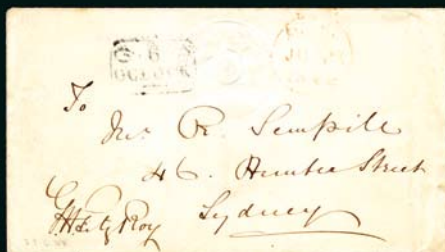 6
O'CLOCK
To
Mr. R. Sempill
46. Hunter Street
Sydney
FitzRoy